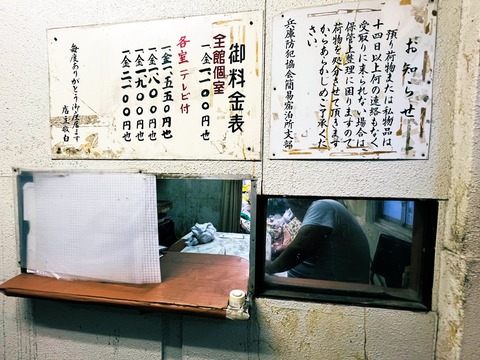 お知らせ
預り荷物または私物品は
十四日以上何の連絡もなく
受取りに来られない場合は
保管上整理に困りますので
荷物を処分させて頂きます
からあらかじめご了承くだ
さい。
兵庫防犯協会簡易宿泊所支部
御料金表
全館個室
各室テレビ付
一金一、五五〇円也
一金一、八〇〇円也
一金一、九〇〇円也
一金二、一〇〇円也
毎度ありがとう御座居ます
店主敬白